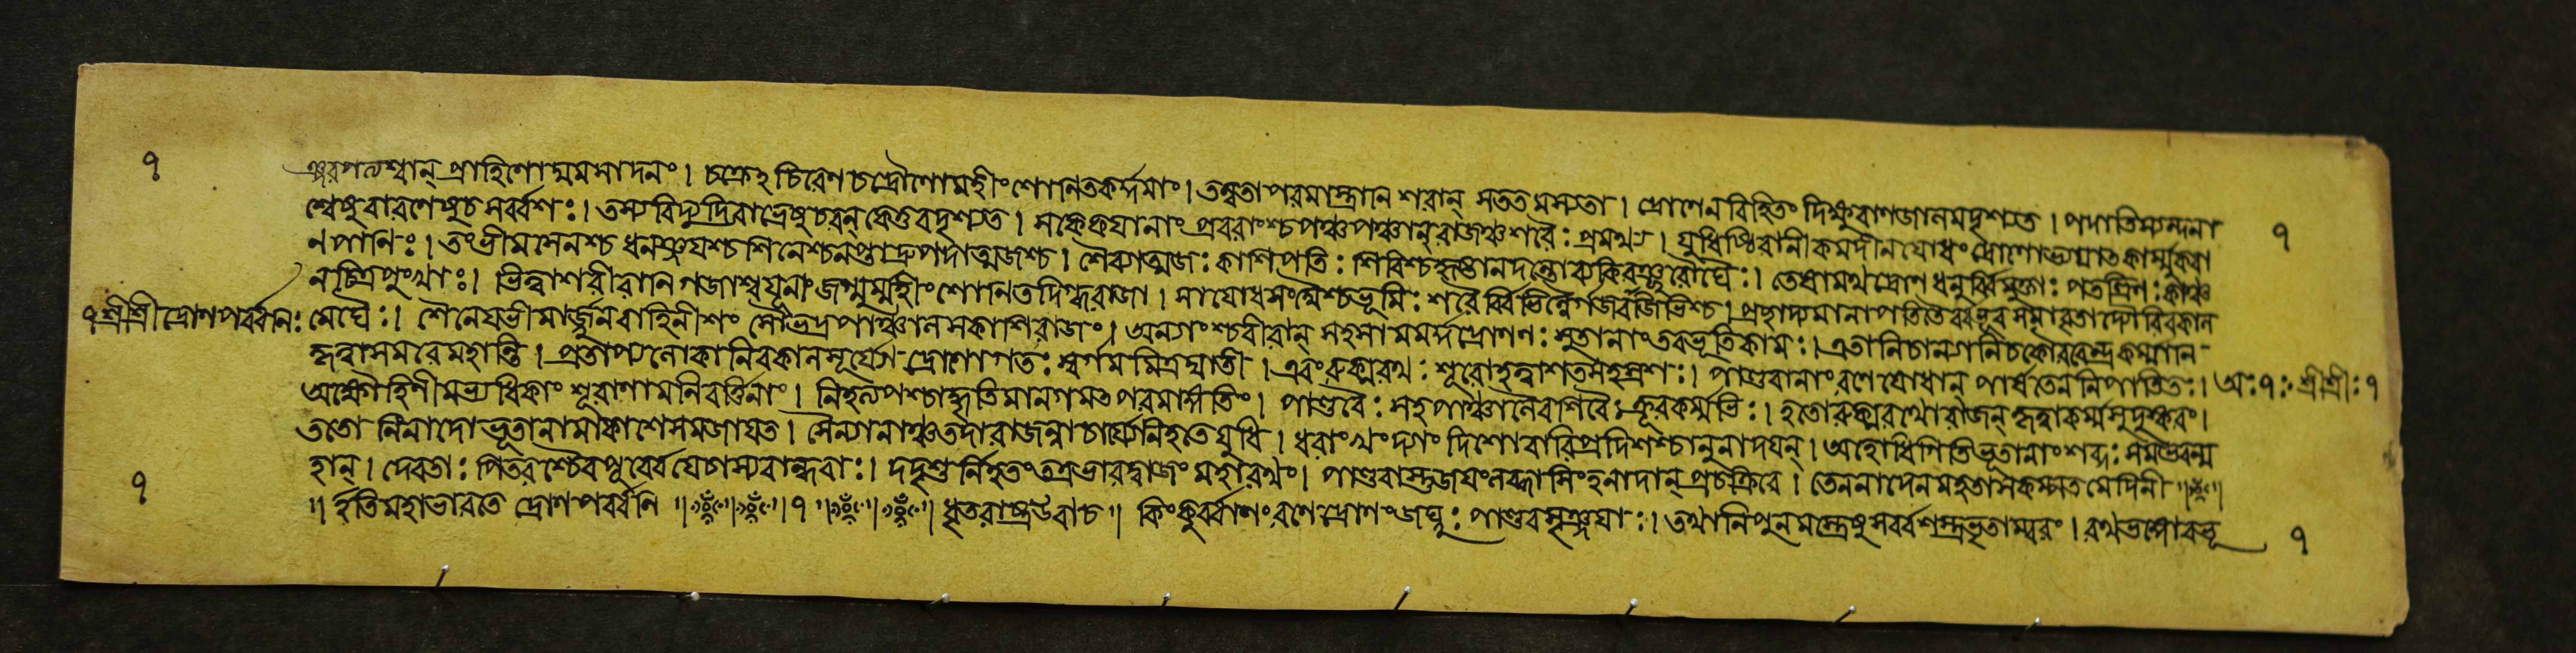 ঞ্জরপত্যশ্বান্ প্রাহিণোদ্যমসাদনং। চক্রেহচিরেণ চ দ্রৌণোমহীং শোনিতকর্দ্দমাং। তন্বতা পরমাস্ত্রানি শরান্ সততমস্যতা। দ্রোণেন বিহিতং দিক্ষু বাণজালমদৃশ্যত। পদাতিস্যন্দনা
শ্বেষু বারণেষু চ সর্ব্বশঃ। তস্য বিদ্যুদ্রিবাভ্রেষু চরন্ কেতুরদৃশ্যত। স কেকয়ানাং প্রবরাংশ্চ পঞ্চ পঞ্চালরাজঞ্চ শরৈঃ প্রমথ্য। যুধিষ্ঠিরানীকমদীনযোধং দ্রোণোভ্যয়াত কার্ম্মুকবা
ণপানিঃ। তং ভীমসেনশ্চ ধনঞ্জয়শ্চ শিনেশ্চ নপ্তা দ্রুপদাত্মজশ্চ। শৈব্যাত্মজঃ কাশিপতিঃ শিবিশ্চ হৃষ্টা নদন্তো ব্যকিরঞ্ছরৌঘৈঃ। তেষামথ দ্রোণ ধনুর্ব্বিমুক্তাঃ পতত্রিণঃ কাঞ্চ
নচিত্রপুংখাঃ। ভিত্ত্বা শরীরানি গজাশ্বযূনাং জগ্মুর্ম্মহীং শোনিতদিগ্ধরাজা। সা যোধসংঘৈশ্চ ভূমিঃ শরৈর্ব্বিভিন্নৈর্গজবাজিভিশ্চ। প্রছাদ্যমানা পতিতৈর্ব্বভূব সমাবৃতা দ্যৌরিব কাল
৭ শ্রীশ্রীদ্রোণপর্ব্বনঃ মেঘৈঃ। শৈনেয়ভীমার্জ্জুনবাহিনীশং সৌভদ্রপাঞ্চালসকাশিরাজং। অন্যাংশ্চ বীরান্ সহসা মমর্দ্দ দ্রোণঃ সুতানাং তব ভূতিকামঃ। এতানি চান্যানি চ কৌরবেন্দ্র কর্ম্মানি
কৃত্বা সমরে মহান্তি। প্রতাপ্য লোকানিব কালসূর্য্যো দ্রোণো গতঃ স্বর্গমমিত্রঘাতী। এবং রুক্মরথঃ শূরো হত্বা শতসহস্রশঃ। পাণ্ডবানাং রণে যোধান্ পার্ষতেন নিপাতিতঃ। অঃ ৭ঃ শ্রীশ্রীঃ ৭
অক্ষৌহিণীমভ্যধিকাং শূরাণামনিবর্ত্তিনাং। নিহত্য পশ্চাদ্ধৃতিমানগমত পরমাঙ্গতিং। পাণ্ডবৈঃ সহ পাঞ্চালৈরশিবৈঃ ক্রূরকর্ম্মভিঃ। হতো রুক্মরথো রাজন্ কৃত্বা কর্ম্ম সুদুষ্করং।
ততো নিনাদো ভূতানামাকাশে সমজায়ত। সৈন্যানাঞ্চ তদা রাজন্নাচার্য্যে নিহতে যুধি। ধরাং খং দ্যাং দিশো বারি প্রদিশশ্চানুনাদয়ন্। অহো ধিগিতি ভূতানাং শব্দঃ সমভবন্ম
হান্। দেবতাঃ পিতরশ্চৈব পূর্ব্বে যে চাস্য বান্ধবাঃ। দদৃশুর্নিহতং তত্র ভারদ্বাজং মহারথং। পাণ্ডবাস্তু জয়ং লব্ধা সিংহনাদান্ প্রচক্রিরে। তেন নাদেন মহতা সমকম্পত মেদিনী
॥ ইতি মহাভারতে দ্রোণপর্ব্বণি ॥ ৭ ॥ ধৃতরাষ্ট্র উবাচ ॥ কিং কুর্ব্বাণং রণে দ্রোণং জঘ্নুঃ পাণ্ডবসৃঞ্জয়াঃ। তথা নিপুনমস্ত্রেষু সর্ব্বশস্ত্রভৃতাম্বরং। রথভঙ্গো বভূ
৭
৭
৭
৭